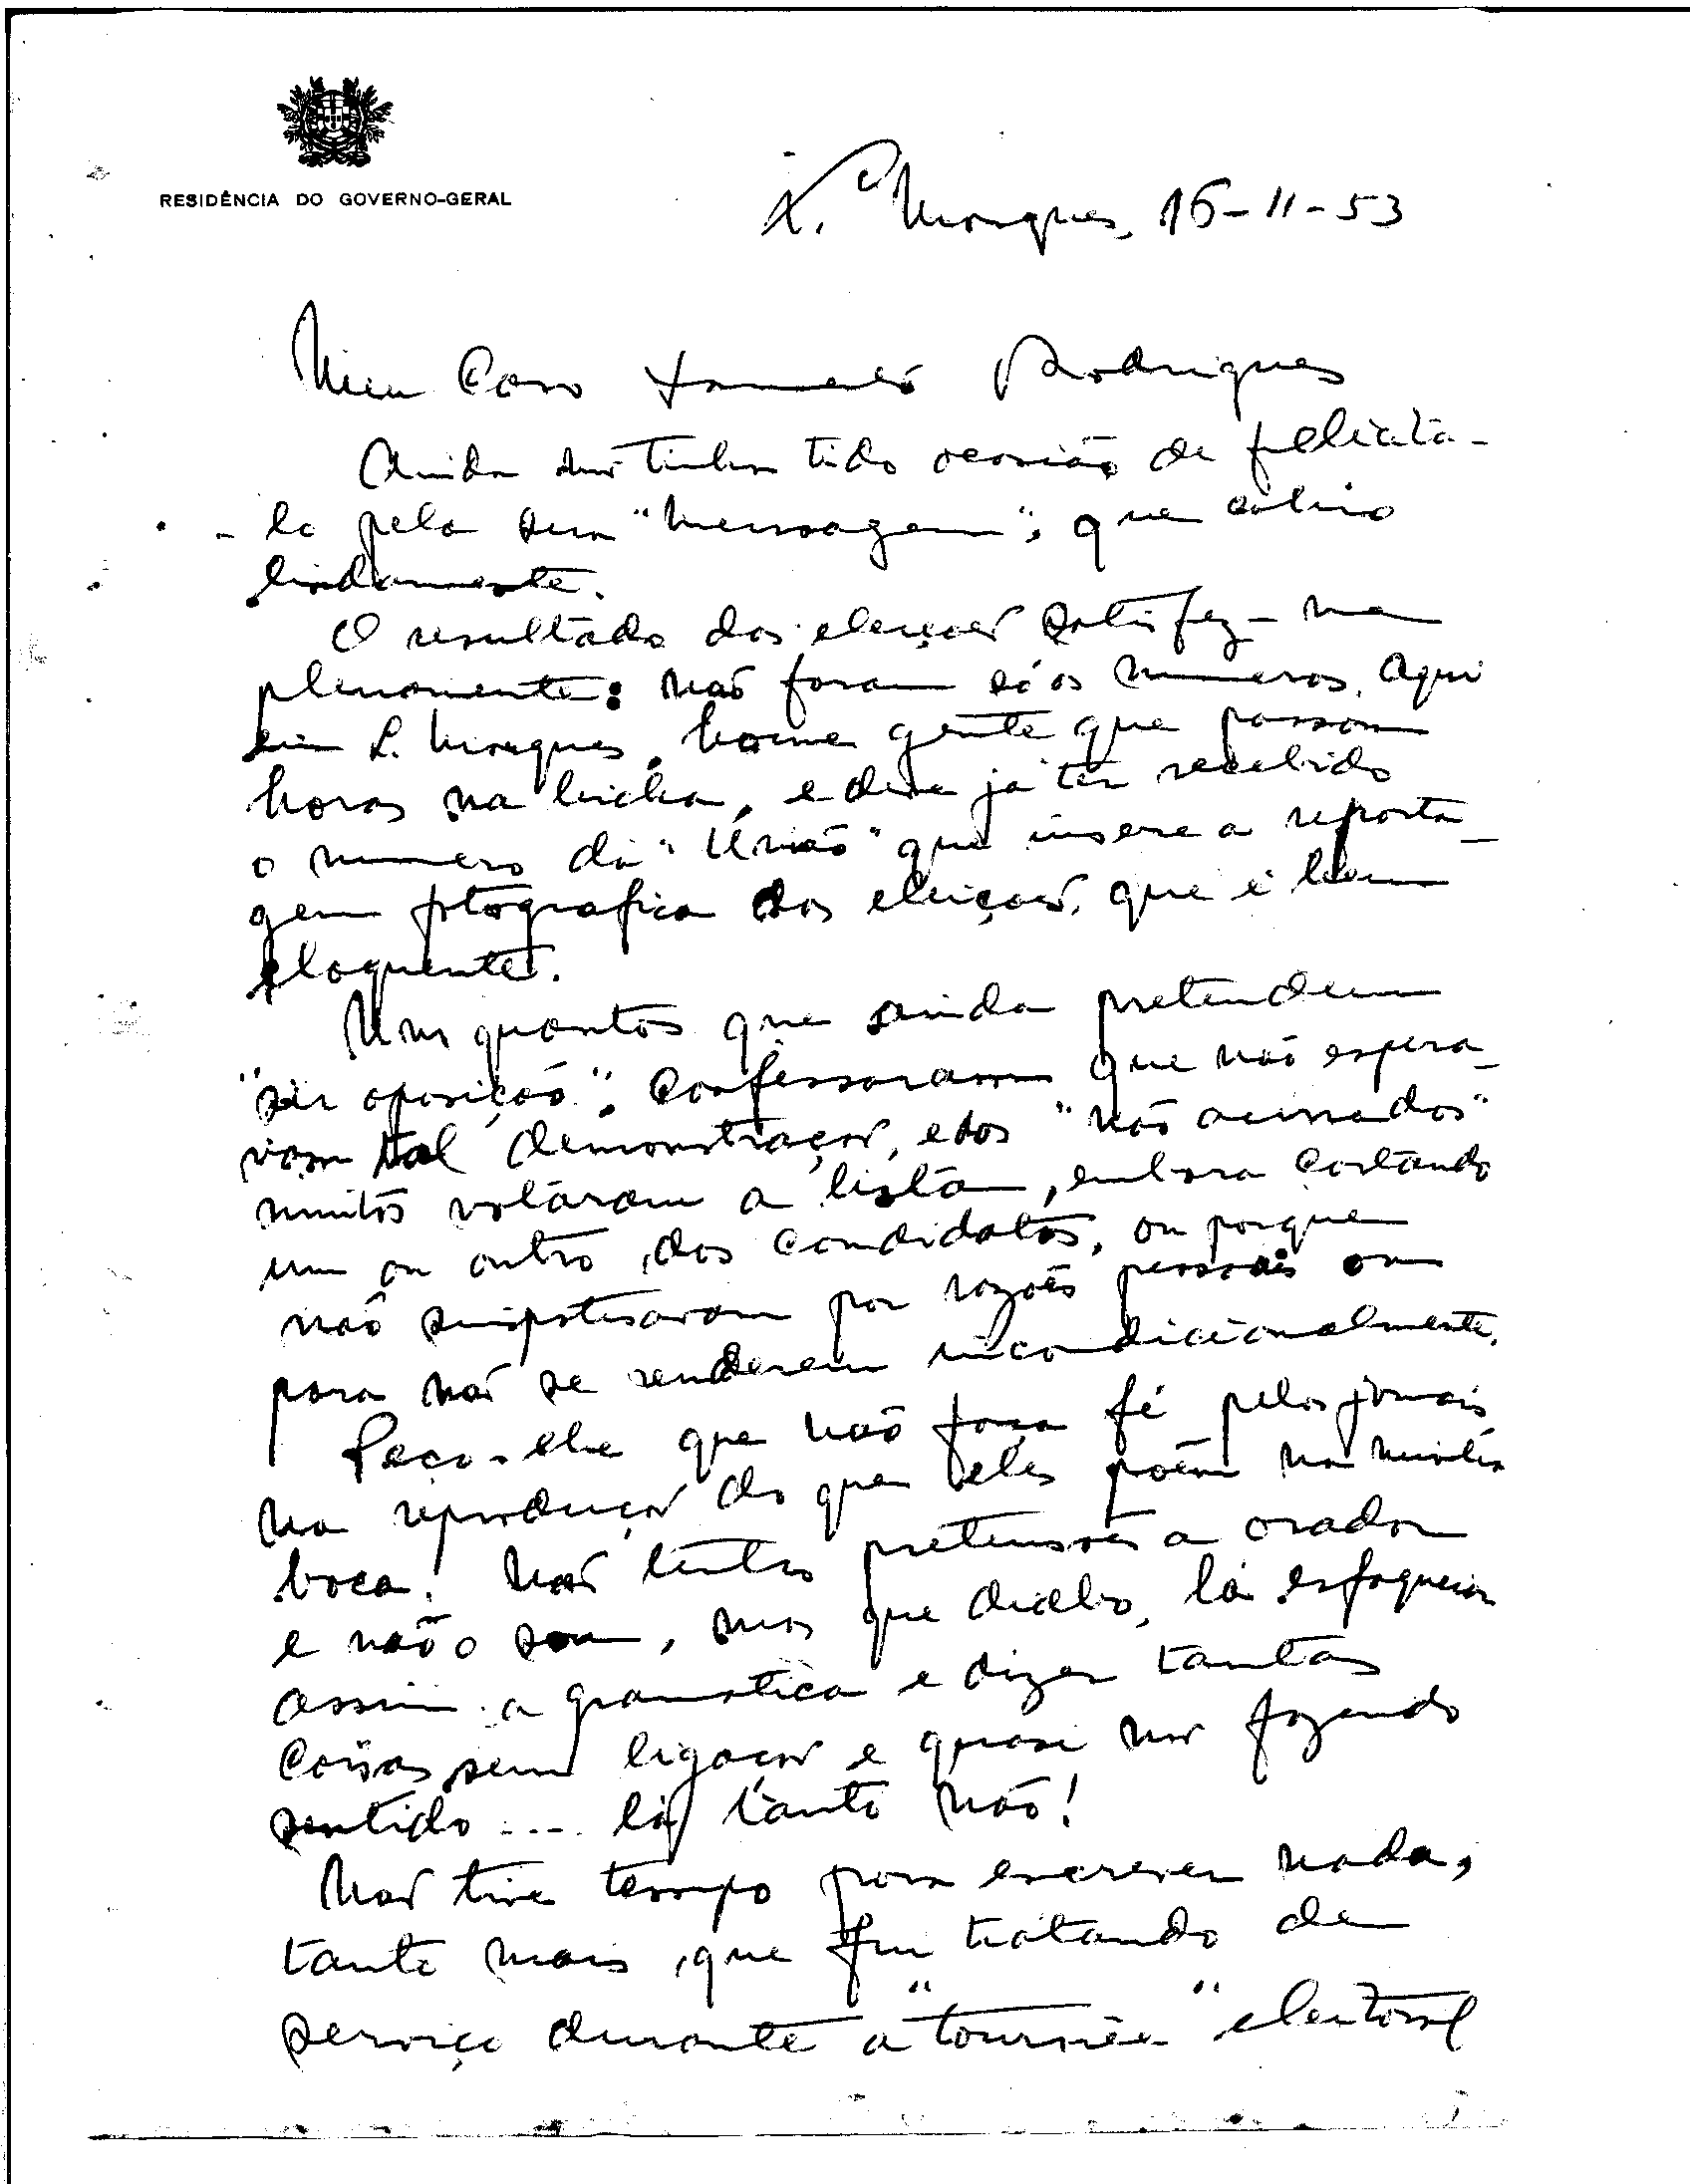 RESIDÊNCIA DO GOVERNO-GERAL
L. Marques, 16-11-53
Meu Caro Rodrigues
Ainda não tinha tido ocasião de felicitá-
-lo pela sua "Mensagem", que
lindamente.
O resultado das eleições satisfez-me
plenamente: não foram só os numeros. Aqui
em L. Marques, houve gente que passou
horas na bicha, e deve já ter recebido
o numero da "União" que insere a reporta-
gem fotografica das eleições, que é bem
eloquente.
Uns quantos que ainda pretendem
"ser oposição", confessaram que não espera-
vam tal demonstração, e dos "não acusados"
muitos votaram a lista, embora cortando
um ou outro dos candidatos, ou porque
não simpatisavam por razões pessoais ou
para não se renderem incondicionalmente.
Peço-lhe que não faça fé pelos jornais
na reprodução do que eles põem na minha
boca. Não tenho pretensões a orador
e não o sou, mas que diabo, lá esfaquear
assim a gramatica e dizer tantas
coisas sem ligação e quasi não fazendo
sentido .... lá tanto não!
Não tive tempo para escrever nada,
tanto mais, que fui tratando de
serviço durante a "tournée" eleitoral